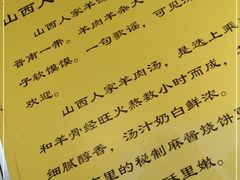 山西人
山西人家羊
晋南一带。羊肉羊杂大
子软馍馍。一句歌谣,可见
欢迎。
山西人家羊肉汤,是选上果
和羊骨经旺火熬数小时而成,
细腻醇香,汤汁奶白鲜浓。
店里的秘制麻酱烧饼
酥里嫩。